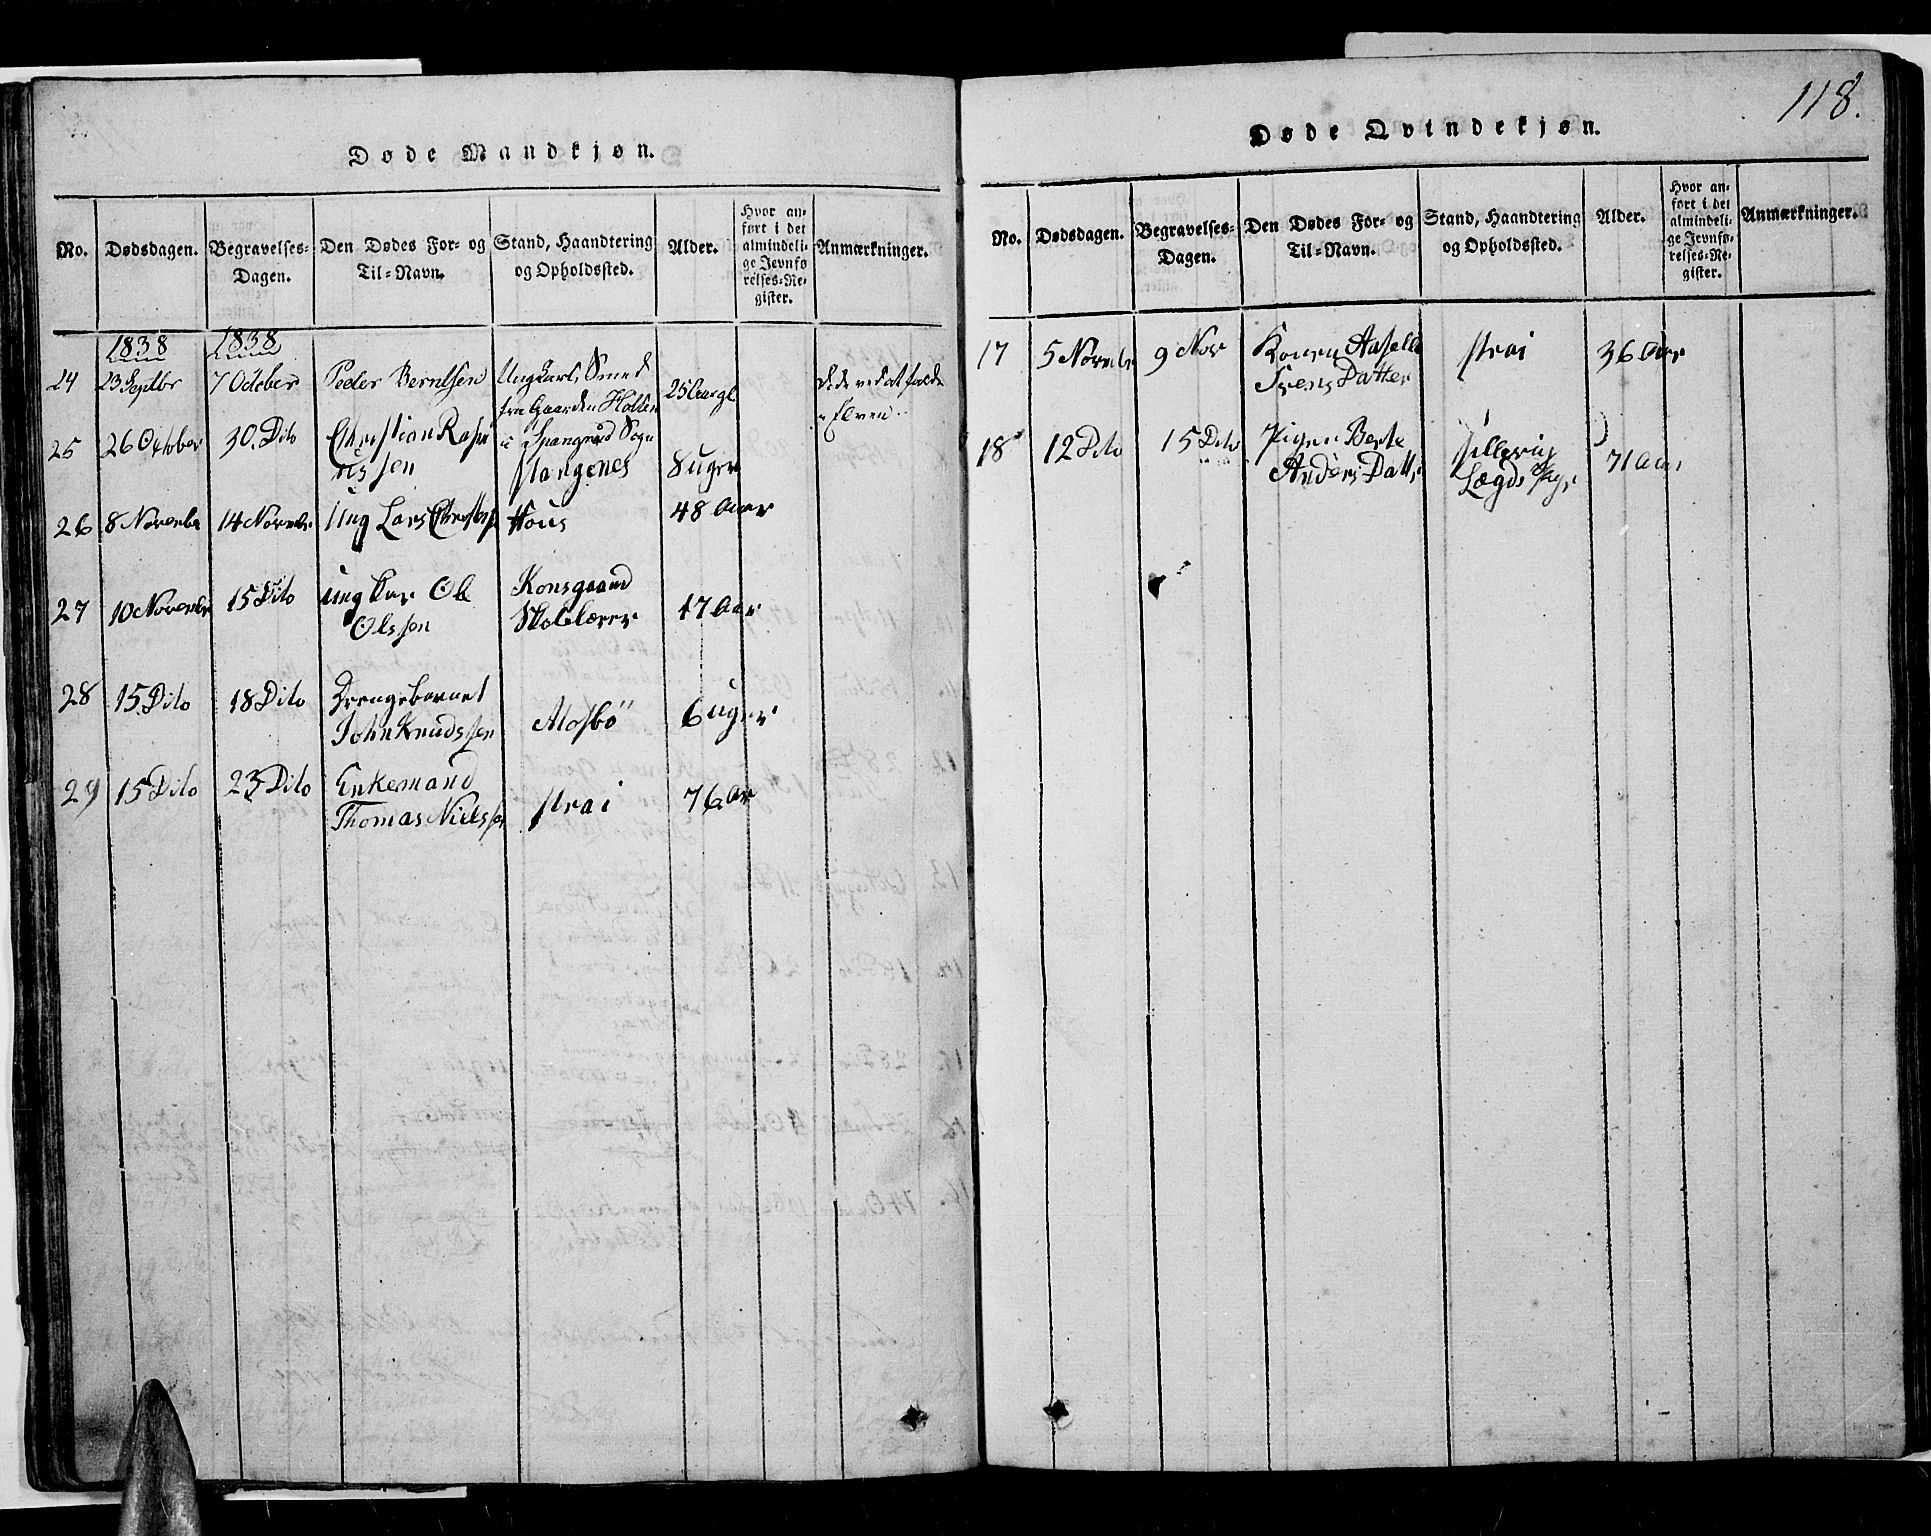 118.
Døde Mandkjøn.
No. Dødsdagen. Begravelses-Dagen. Den Dødes For- og Til-Navn. Stand, Haandtering og Opholdssted. Alder. Hvor anført i det almindelige Jevnførelses-Register. Anmærkninger.
1838 1838
24 23 Septbr 7 October Peder Berntsen Ungkarl, Smed
fra Gaarden Holsen 25 Aar gl
i Sogn
Døde ved at falde
i Elven
25 26 October 30. Dito Christian Rasm
ussen Stangenes 8 Uger
26 8 Novembr 14 Novembr Ung Lars Hous 48 Aar
27 10 Novembr 15 Dito Ungkar Ole
Olssen
Konsgaard
Skolelærer 17 Aar
28 15. Dito 18 Dito Drengebarnet
John Knudssen Mosbö 6 Uger
29 15 Dito 23 Dito Enkemand
Thomas Nielssen Strai 76 Aar
Døde Qvindekjøn.
No. Dødsdagen. Begravelses-Dagen. Den Dødes For- og Til-Navn. Stand, Haandtering og Opholdssted. Alder. Hvor anført i det almindelige Jevnførelses-Register. Anmærkninger.
17 5 Novembr 9 Nov Konen Aaselle
Svens Datter Strai 36 Aar
18 12 Dito 15 Dito Pigen Berte
Anders Datter
Lægds Pige 71 Aar